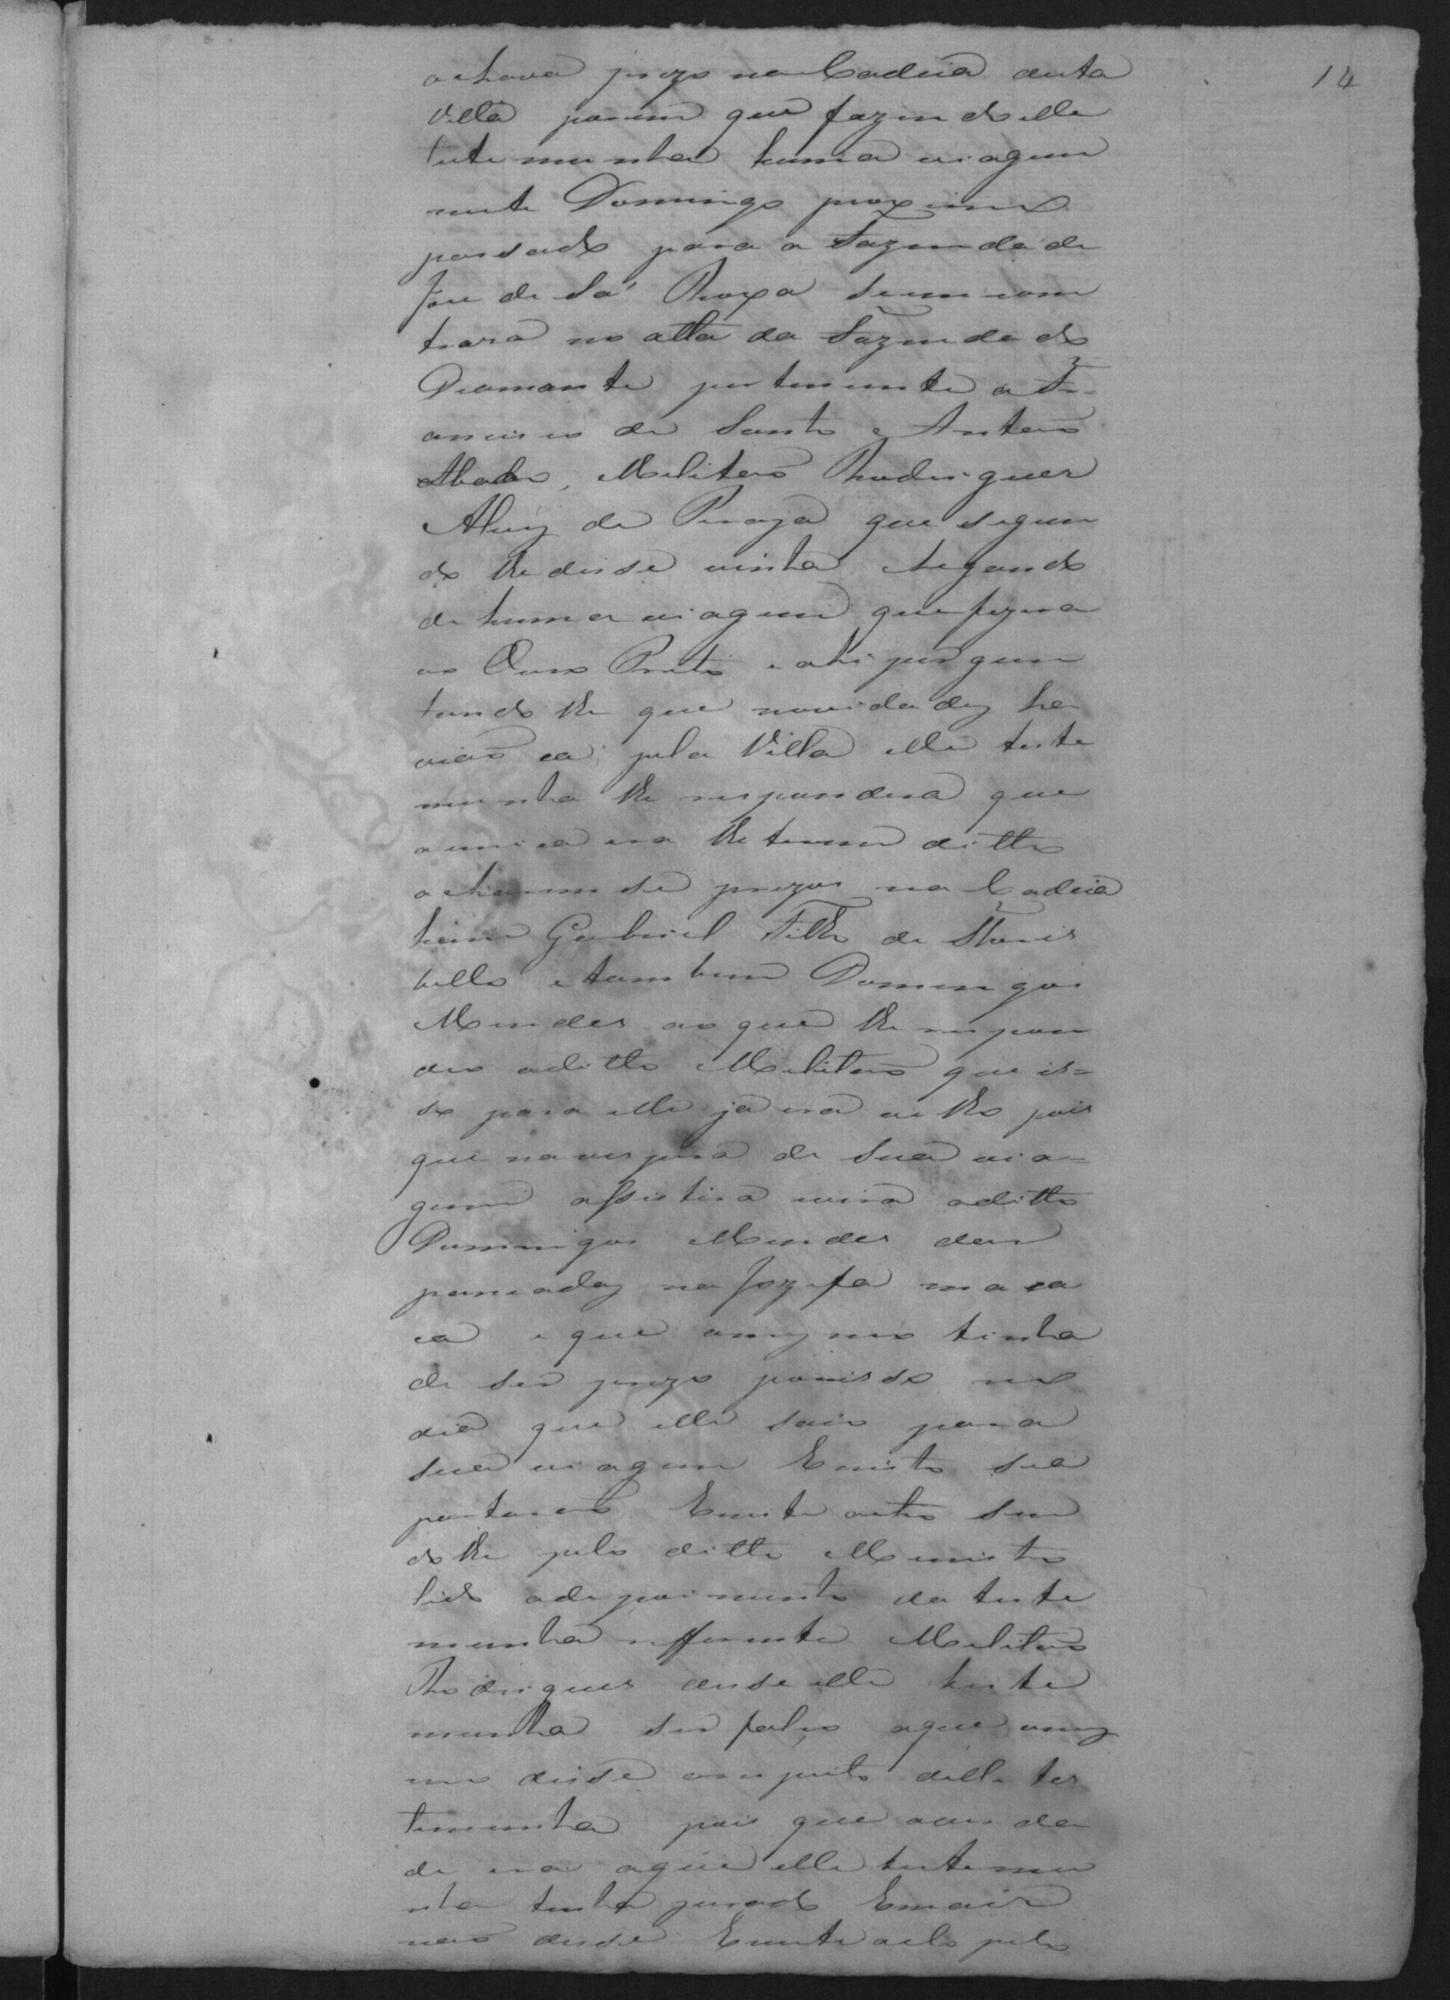 14
achava prezo na Cadeia desta
Villa porem que fazendo elle
testemunha huma viagem
neste Domingo proximo
passado para a Fazenda de
Joze de Sá Roxa se encon
trara no alto da Fazenda do
Diamante pertencente a Fr=
ancisco de Santo e Antero
Militaõ Rodrigues
de que segun
do lhe disse vinha chegando
de huma viagem que fizera
ao Ouro Preto e ahi pergun
tando lhe que novidadez ha
viaõ ca pela Villa elle teste
munha lhe respondera que
a unica era lhe terem ditto
acharem se prezos na Cadeia
hum Gabriel Filho de Floris
bello e tambem Domingos
Mendes ao que lhe respon
deo o ditto Militaõ que is=
so para elle ja era velho pois
que na vespera de sua via=
gem assistira vira o ditto
Domingos Mendes dar
pancadaz na Jozefa maca
ca e que o mesmo tinha
de ser prezo por isso no
dia que elle saio para
sua viagem E nisto se a
partaraõ E neste acto sen
do lhe pelo ditto Menistro
lido o depoimento da teste
munha referente Militaõ
Rodrigues disse elle teste
munha ser falço o que o mes
mo disse a respeito delle tes
temunha pois que a verda
de era a que elle testemu
nha tinha jurado E mais
naõ disse E neste acto pelo